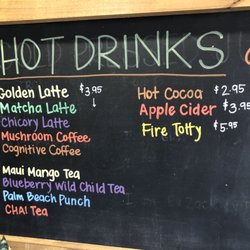 HOT DRINKS
Golden Latte $3.95
Matcha Latte ↓
Chicory Latte
Mushroom Coffee
Cognitive Coffee
Maui Mango Tea
Blueberry Wild Child Tea
Palm Beach Punch
CHAI Tea
Hot Cocoa $2.95
Apple Cider $3.95
Fire Totty $5.95